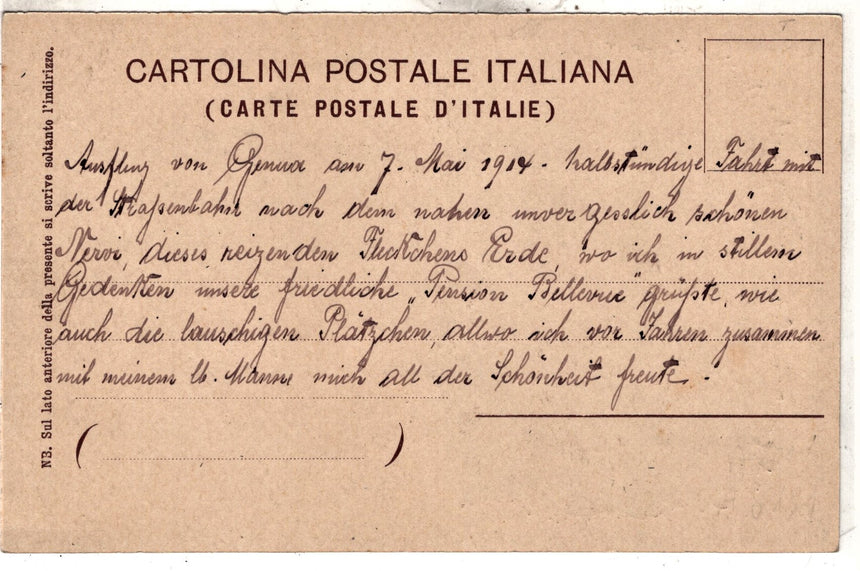 CARTOLINA POSTALE ITALIANA
(CARTE POSTALE D'ITALIE)
NB. Sul lato anteriore della presente si scrive soltanto l'indirizzo.
Ausflug von Genua am 7. Mai 1914 - halbstündige Fahrt mit
der Straßenbahn nach dem nahen unvergesslich schönen
Nervi, dieses reizenden Fleckchens Erde, wo ich in stillem
Gedenken unsere friedliche „Pension Bellevue" grüßte, wie
auch die lauschigen Plätzchen, allwo ich vor Jahren zusammen
mit meinem lb. Manne mich all der Schönheit freute.